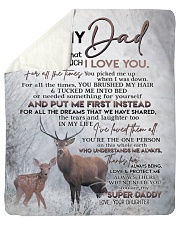 MY Dad
that
UCH I LOVE YOU.
For all the times You picked me up
when I was down.
For all the times, YOU BRUSHED MY HAIR
& TUCKED INTO BED
or needed something for yourself
AND PUT ME FIRST INSTEAD
FOR ALL THE DREAMS THAT WE HAVE SHARED,
the tears and laughter too
IN MY LIFE
I've loved them all
YOU'RE THE ONE PERSON
on this whole earth
WHO UNDERSTANDS ME ALWAYS.
Thanks for
ALWAYS BEING,
LOVE & PROTECT ME
ALWAYS THERE
WHEN I NEED YOU
SUPER DADDY
LOVE, YOUR DAUGHTER